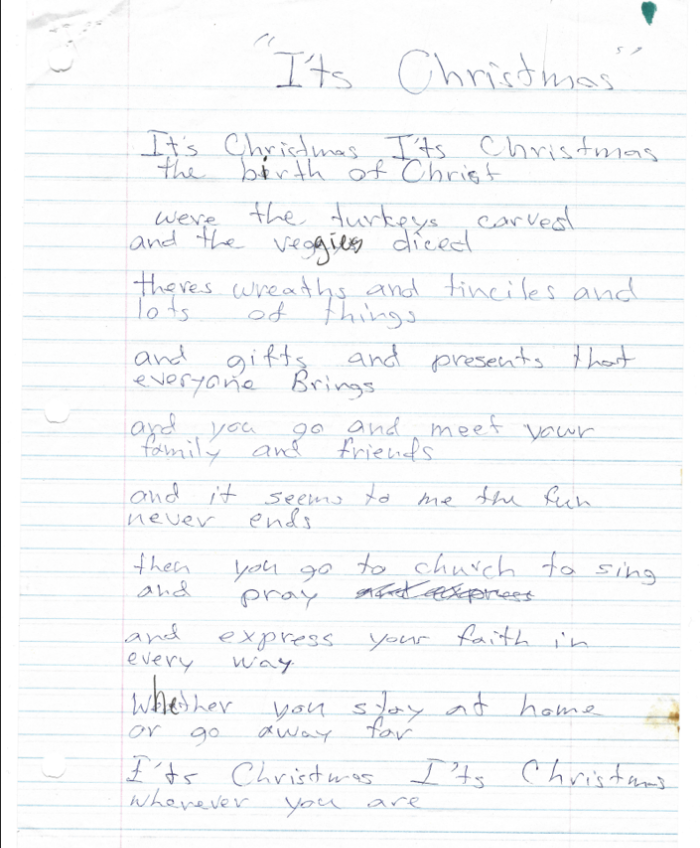 "I'ts Christmas"
It's Christmas I'ts Christmas
the birth of Christ
were the turkeys carved
and the veggies diced
theres wreaths and tinciles and
lots of things
and gifts and presents that
everyone Brings
and you go and meet your
family and friends
and it seems to me the fun
never ends
then you go to church to sing
and pray and express
and express your faith in
every way
Whether you stay at home
or go away far
I'ts Christmas I'ts Christmas
wherever you are